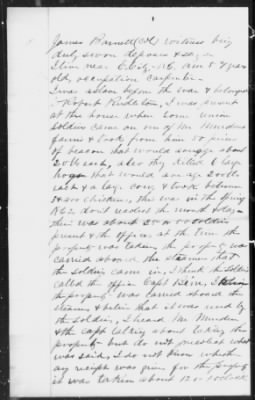 James Barnett (Col) witness being
duly sworn deposes & says
I live near E. City N.C. am 57 years
old, occupation carpenter
I was a slave before the war & belonged
to Robert Pendleton, I was present
at the house when some Union
soldiers came on one of Mr
farms & took from him
of bacon that would average about
20 lbs each, also they killed 6 large
hogs that would average 200 lbs
each & a large cow, & took between
chickens, this was in the spring
1862 dont recollect the month & day
there was about 25 or soldiers
present & the officer at the time the
property was taken, the property was
carried aboard the steamer that
the soldiers came in, I think the soldiers
called the officer Capt I
the property was carried aboard the
steamer & believe that it was used by
the soldiers, I heard Mr
& the Capt talking about taking this
property but do not recollect what
was said, I do not know whether
any receipt was given for the property
it was taken about 12 o'clock